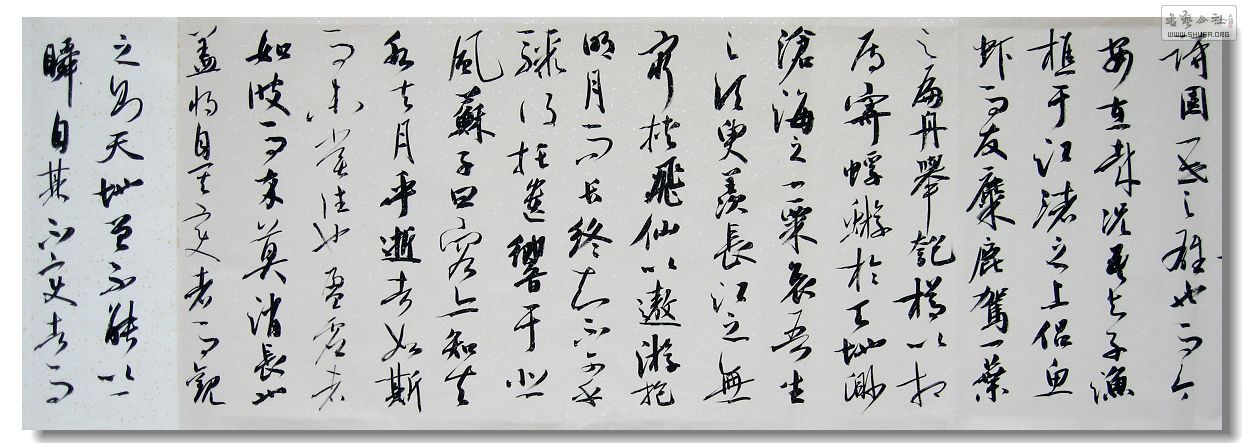 詩固一世之雄也而今
安在哉況吾与子漁
樵于江渚之上侣魚
虾而友麋鹿駕一葉
之扁舟舉匏樽以相
属寄蜉蝣於天地渺
滄海之一粟哀吾生
之須臾羨長江之無
窮挟飛仙以遨游抱
明月而長終知不可乎
驟得托遺響于悲
風蘇子曰客亦知夫
水与月乎逝者如斯
而未嘗往也盈虛者
如彼而卒莫消長也
蓋將自其变者而觀
之则天地曾不能以一
瞬自其不变者而
書藝公社
WWW.SHUFA.ORG